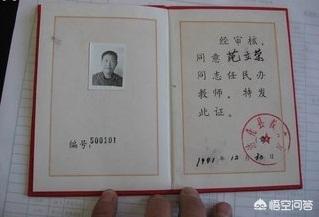 编号: 500101
经审核,
同意范立荣
同志任民办
教师。特发
此证。
1981年12月30日
悟空问答